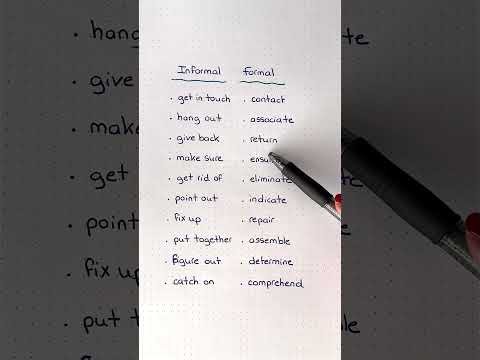 Informal formal
· get in touch · contact
· hang out · associate
· give back · return
· make sure
· get rid of · eliminate
· point out · indicate
· fix up · repair
· put together · assemble
· figure out · determine
· catch on · comprehend